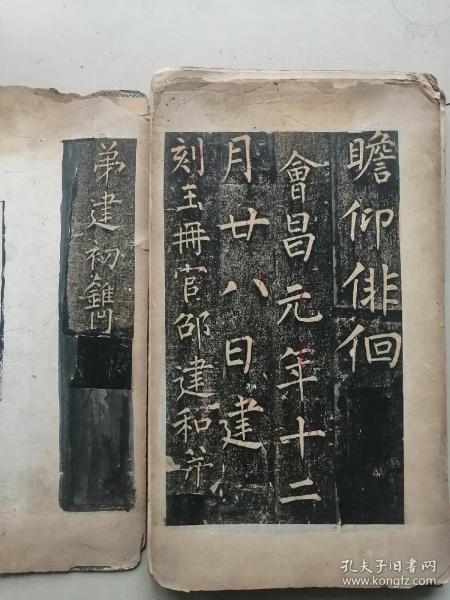 瞻仰徘徊
會昌元年十二
月廿八日建
刻玉冊官邵建和并
弟建初鐫
孔夫子旧书网
www.kongfz.com